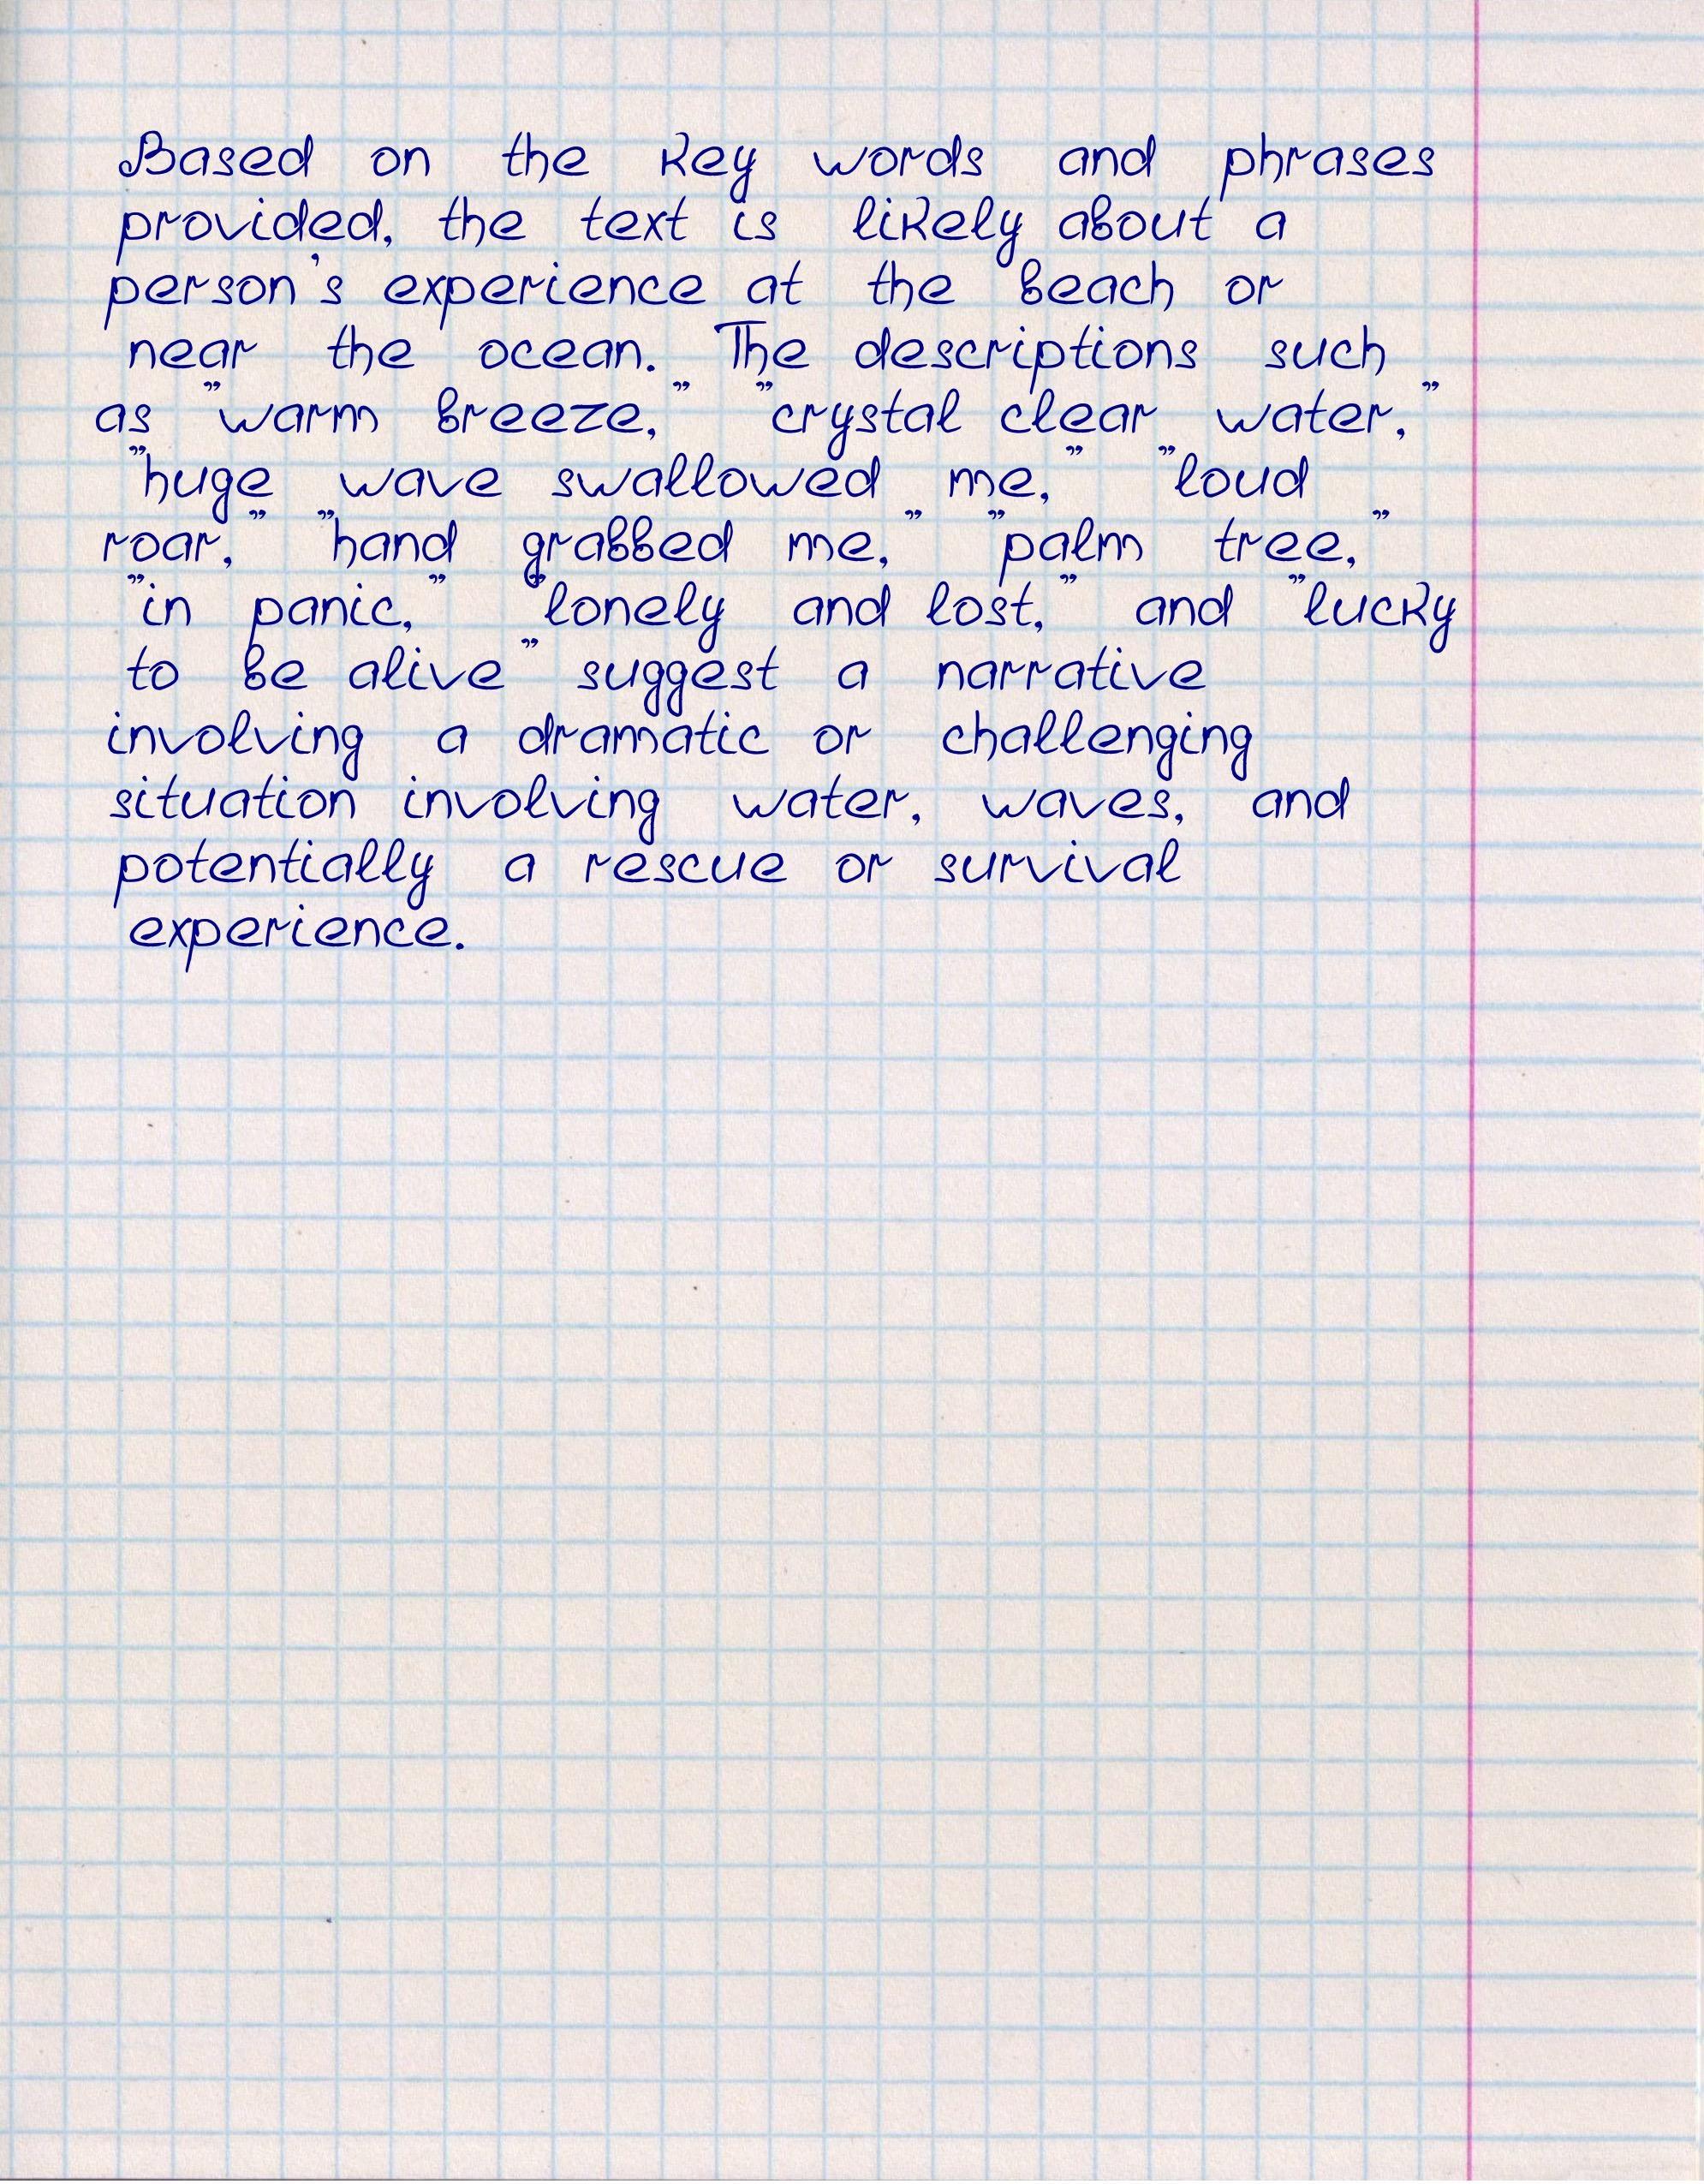 Based on the key words and phrases
provided, the text is likely about a
person's experience at the beach or
near the ocean. The descriptions such
as "warm breeze," "crystal clear water,"
"huge wave swallowed me," "loud
roar," "hand grabbed me," "palm tree,"
"in panic," "lonely and lost," and "lucky
to be alive" suggest a narrative
involving a dramatic or challenging
situation involving water, waves, and
potentially a rescue or survival
experience.